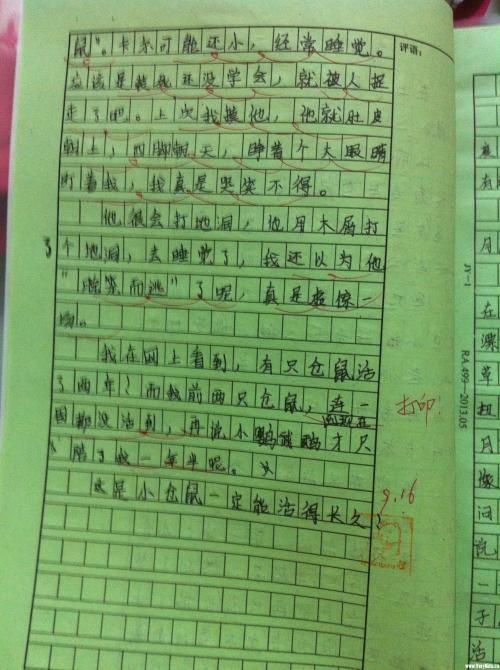 鼠”。卡尔可能还小，经常睡觉。
应该是技能还没学会，就被人捉
走了吧。上次我摸他，他就肚皮
朝上，四脚朝天，睁着个大眼睛
盯着我，我真是哭笑不得。
他很会打地洞，他用木屑打
了个地洞，去睡觉了，我还以为他
“ 而逃”了呢，真是虚惊一
场。
我在网上看到，有只仓鼠活
了两年！而我前两只仓鼠，连一
周都没活到，再说小鹦鹉 才只
陪了我一年半呢。
这是小仓鼠一定能活得长久
评语：
打印！
9.16
JY-1
RA.499-2013.05